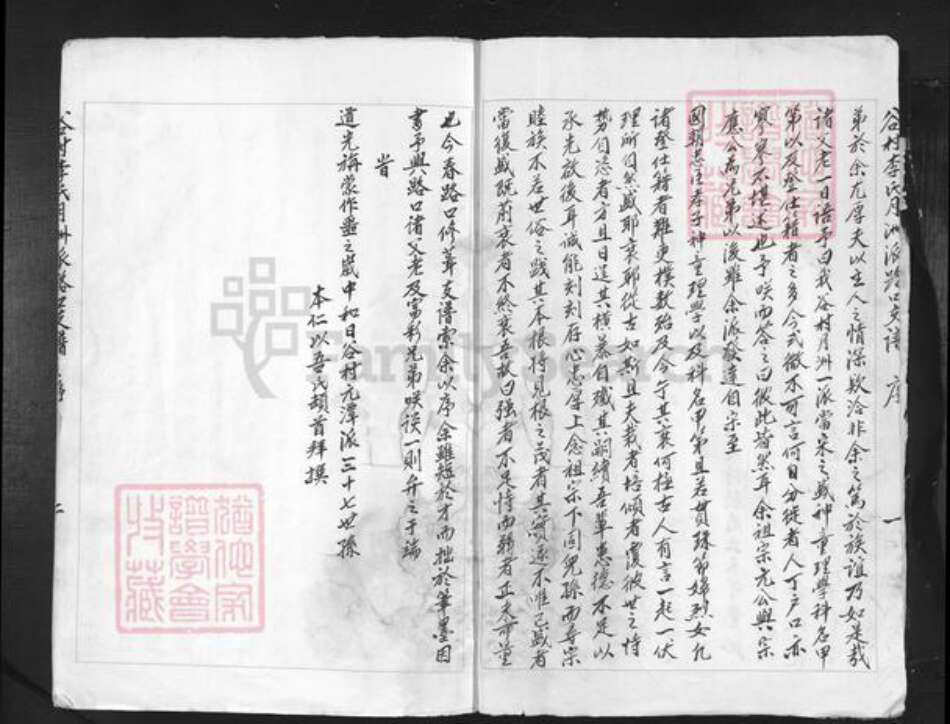 谷村李氏月洲派路口支譜 序 一
弟於余尤厚夫以主人之情深款洽非余之篤於族誼乃如是哉
諸父老一日語予曰我谷村月洲一派當宋之盛神童理學科名甲
第以及登仕籍者之多今式微不可言何自分徙者人丁戶口亦
寥寥不堪述也予咲而答之曰彼此皆然耳余祖宗元公與宗
應公為兄弟以後雖余派發達自宗至
國朝忠臣孝子神童理學以及科名甲第且若貫珠節婦烈女凡
諸登仕籍者難更樸數殆及今乎其衰何極古人有言一起一伏
理所自然盛耶衰耶從古如斯且夫栽者培傾者覆彼世之恃
勢自恣者方且日逞其橫暴自殲其嗣續吾輩患德不足以
承先啟後耳誠能刻刻存心忠厚上念祖宗下固兒孫而尊宗
睦族不若世俗之戕其本根將見根之茂者其實遂不唯已盛者
當復盛既前衰者不終衰吾故曰強者不足恃而弱者正未可量
也今春路口修葺支譜索余以序余雖短於才而拙於筆墨因
書予與路口諸父老及富彩兄弟咲談一則弁之于端
旹
道光旃蒙作噩之歲中和日谷村元潭派三十七世孫
本仁以吾氏頓首拜撰
FamilySearch
譜學會
收藏